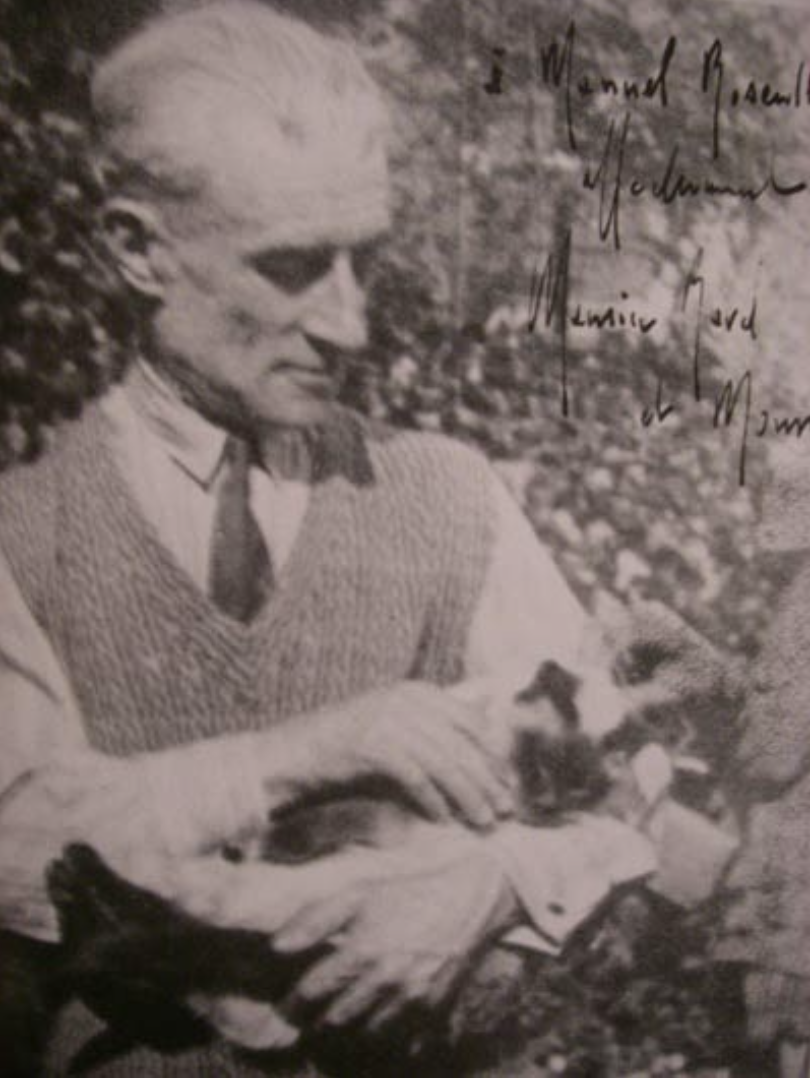 à Manuel Rosenth
affectueusement
Maurice Ravel
et Moun